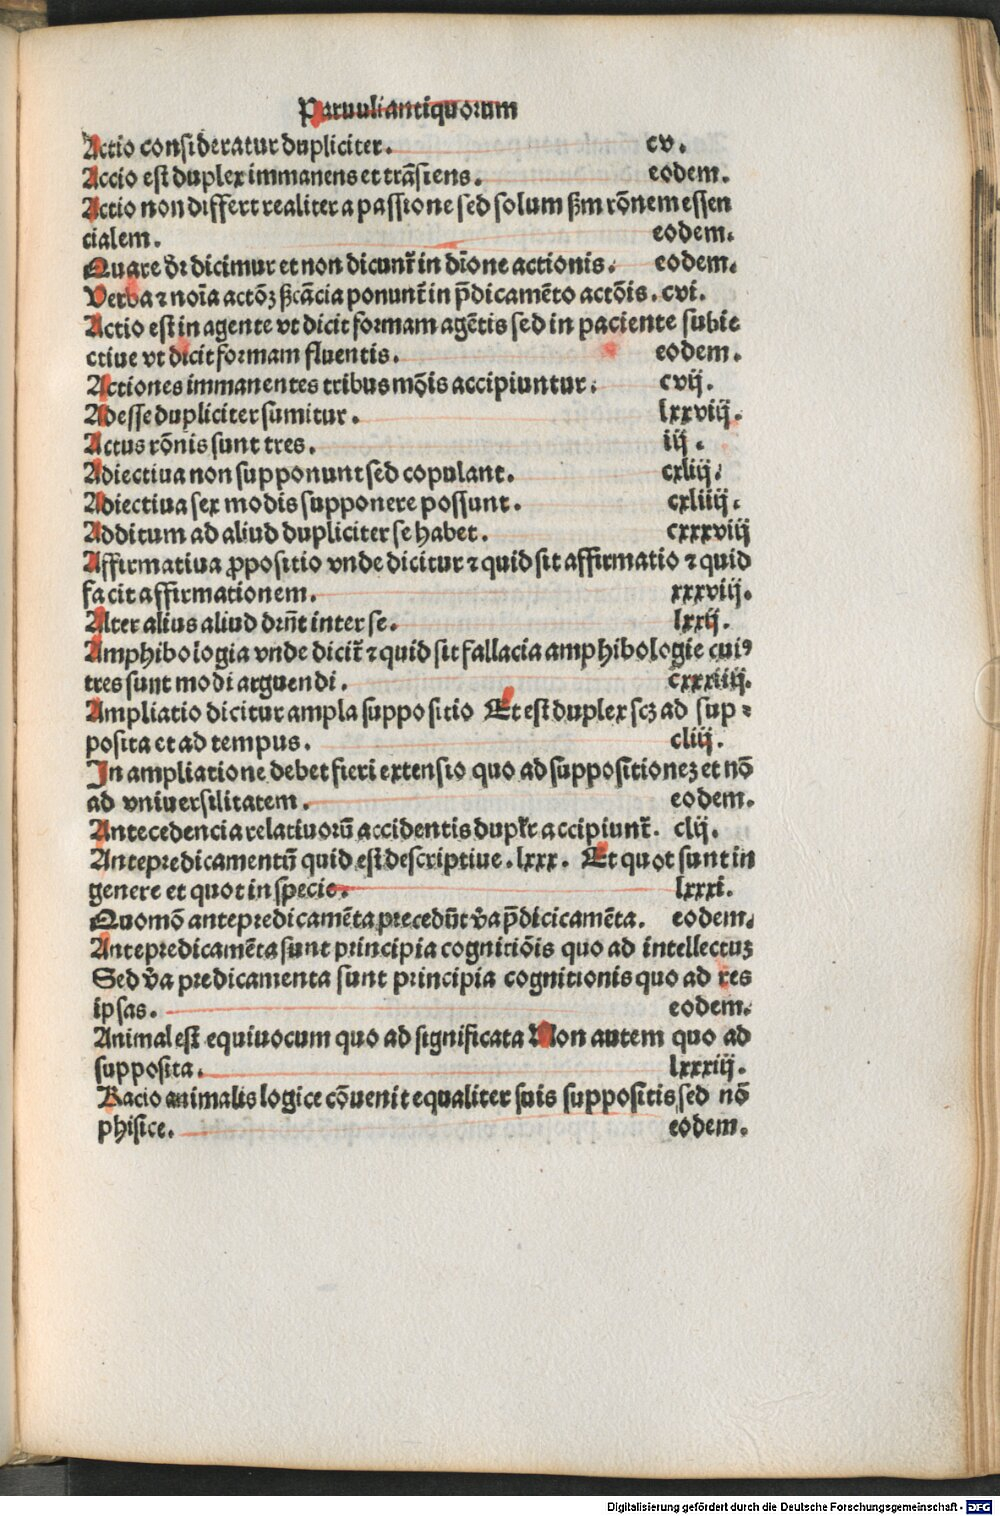 Paruuli antiquorum
Actio consideratur dupliciter. cv.
Accio est duplex immanens et trāsiens. eodem.
Actio non differt realiter a passione sed solum ßm rōnem essen
cialem. eodem.
Quare dr̄ dicimur et non dicunt̄ in dīone actionis. eodem.
Verba ⁊ noīa actōꝫ ßcācia ponunt̄ in p̄dicamēto actōis. cvi.
Actio est in agente vt dicit formam agētis sed in paciente subie
ctiue vt dicit formam fluentis. eodem.
Actiones immanentes tribus mōis accipiuntur. cvij.
Adesse dupliciter sumitur. lxxviij.
Actus rōnis sunt tres. iij.
Adiectiua non supponunt sed copulant. cxliij.
Adiectiua sex modis supponere possunt. cxliiij.
Additum ad aliud dupliciter se habet. cxxxviij
Affirmatiua ꝓpositio vnde dicitur ⁊ quid sit affirmatio ⁊ quid
facit affirmationem. xxxviij.
Alter alius aliud drn̄t inter se. lxxij.
Amphibologia vnde dicit̄ ⁊ quid sit fallacia amphibologie cuiꝰ
tres sunt modi arguendi. cxxxiiij.
Ampliatio dicitur ampla suppositio Et est duplex scꝫ ad sup⸗
posita et ad tempus. cliij.
In ampliatione debet fieri extensio quo ad suppositionez et nō
ad vniuersilitatem. eodem.
Antecedencia relatiuorū accidentis duplr̄ accipiunt̄. clij.
Antepredicamentū quid est descriptiue. lxxx. Et quot sunt in
genere et quot in specie. lxxxi.
Quomō antepredicamēta precedūt v̄a p̄dicicamēta. eodem.
Antepredicamēta sunt principia cognitiōis quo ad intellectuz
Sed v̄a predicamenta sunt principia cognitionis quo ad res
ipsas. eodem.
Animal est equiuocum quo ad significata Non autem quo ad
supposita. lxxxiij.
Racio animalis logice cōuenit equaliter suis suppositis sed nō
phisice. eodem.
Digitalisierung gefördert durch die Deutsche Forschungsgemeinschaft - DFG